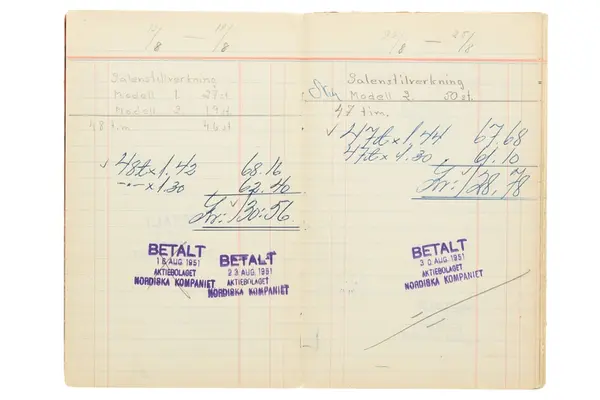 /8 — /8
Salenstilverkning
Modell 1.
Modell 2. 19st
48 tim 46st
48t x 1.42 68.16
-"- x 1.30 62.40
Kr: 130:56
BETALT
18 AUG. 1951
AKTIEBOLAGET
NORDISKA KOMPANIET
BETALT
23 AUG. 1951
AKTIEBOLAGET
NORDISKA KOMPANIET
/8 — 25/8
Salenstilverkning
Modell 2. 50st.
47 tim.
47t x 1.44 67.68
47t x 1.30 61.10
Kr: 128,78
BETALT
30 AUG. 1951
AKTIEBOLAGET
NORDISKA KOMPANIET